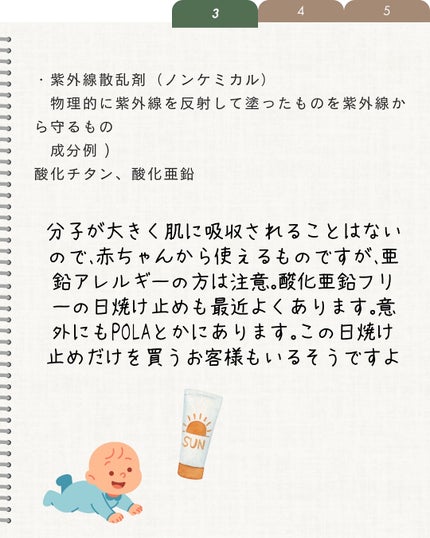 3
4
5
・紫外線散乱剤（ノンケミカル）
物理的に紫外線を反射して塗ったものを紫外線か
ら守るもの
成分例 )
酸化チタン、酸化亜鉛
分子が大きく肌に吸収されることはない
ので、赤ちゃんから使えるものですが、亜
鉛アレルギーの方は注意。酸化亜鉛フリ
ーの日焼け止めも最近よくあります。意
外にもPOLAとかにあります。この日焼け
止めだけを買うお客様もいるそうですよ
SUN